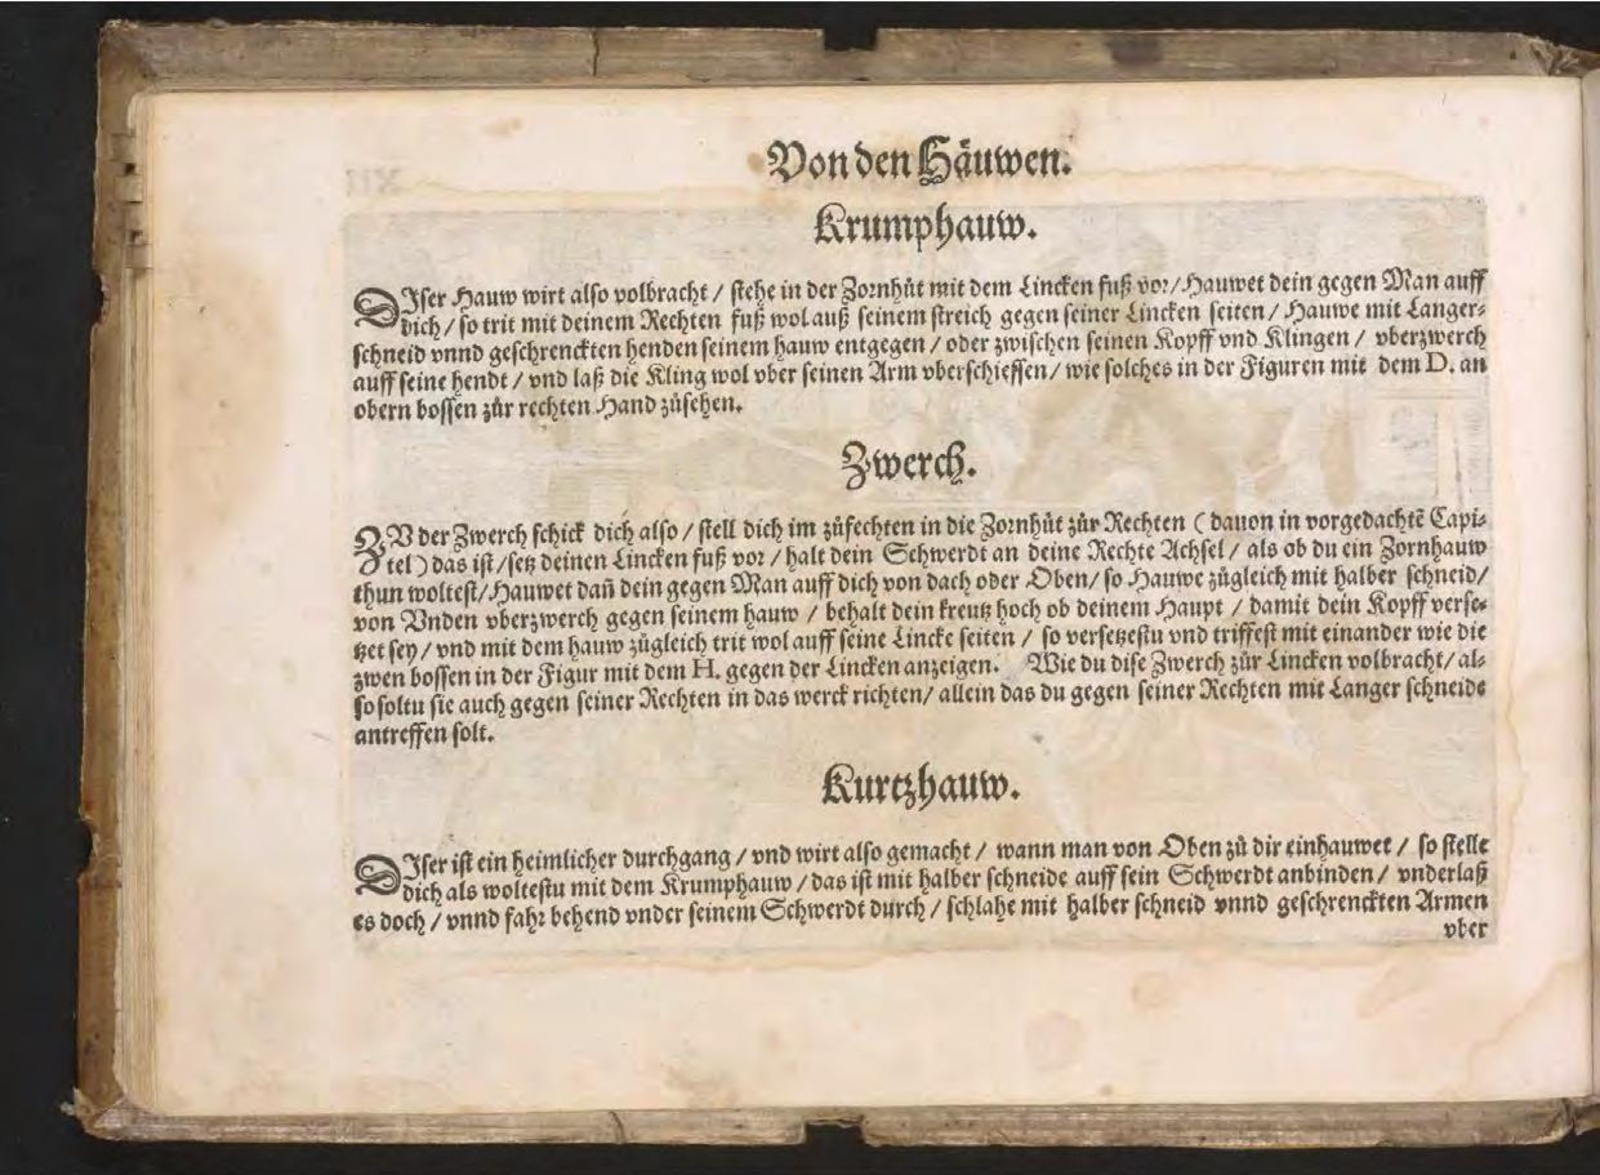 Von den Häuwen.
Krumphauw.
DIser Hauw wirt also volbracht / stehe in der Zornhůt mit dem Lincken fuß vor / Hauwet dein gegen Man auff
dich / so trit mit deinem Rechten fuß wol auß seinem streich gegen seiner Lincken seiten / Hauwe mit Langer-
schneid vnnd geschrenckten henden seinem hauw entgegen / oder zwischen seinen Kopff vnd Klingen / vberzwerch
auff seine hendt / vnd laß die Kling wol vber seinen Arm vberschiessen / wie solches in der Figuren mit dem D. an
obern bossen zůr rechten Hand zůsehen.
Zwerch.
ZV der Zwerch schick dich also / stell dich im zůfechten in die Zornhůt zůr Rechten ( dauon in vorgedachtē Capi-
tel ) das ist / setz deinen Lincken fuß vor / halt dein Schwerdt an deine Rechte Achsel / als ob du ein Zornhauw
thun woltest / Hauwet dañ dein gegen Man auff dich von dach oder Oben / so Hauwe zůgleich mit halber schneid /
von Vnden vberzwerch gegen seinem hauw / behalt dein kreutz hoch ob deinem Haupt / damit dein Kopff verse-
tzet sey / vnd mit dem hauw zůgleich trit wol auff seine Lincke seiten / so versetzestu vnd triffest mit einander wie die
zwen bossen in der Figur mit dem H. gegen der Lincken anzeigen. Wie du dise Zwerch zůr Lincken volbracht / al-
so soltu sie auch gegen seiner Rechten in das werck richten / allein das du gegen seiner Rechten mit Langer schneide
antreffen solt.
Kurtzhauw.
DIser ist ein heimlicher durchgang / vnd wirt also gemacht / wann man von Oben zů dir einhauwet / so stelle
dich als woltestu mit dem Krumphauw / das ist mit halber schneide auff sein Schwerdt anbinden / vnderlaß
es doch / vnnd fahr behend vnder seinem Schwerdt durch / schlahe mit halber schneid vnnd geschrenckten Armen
vber